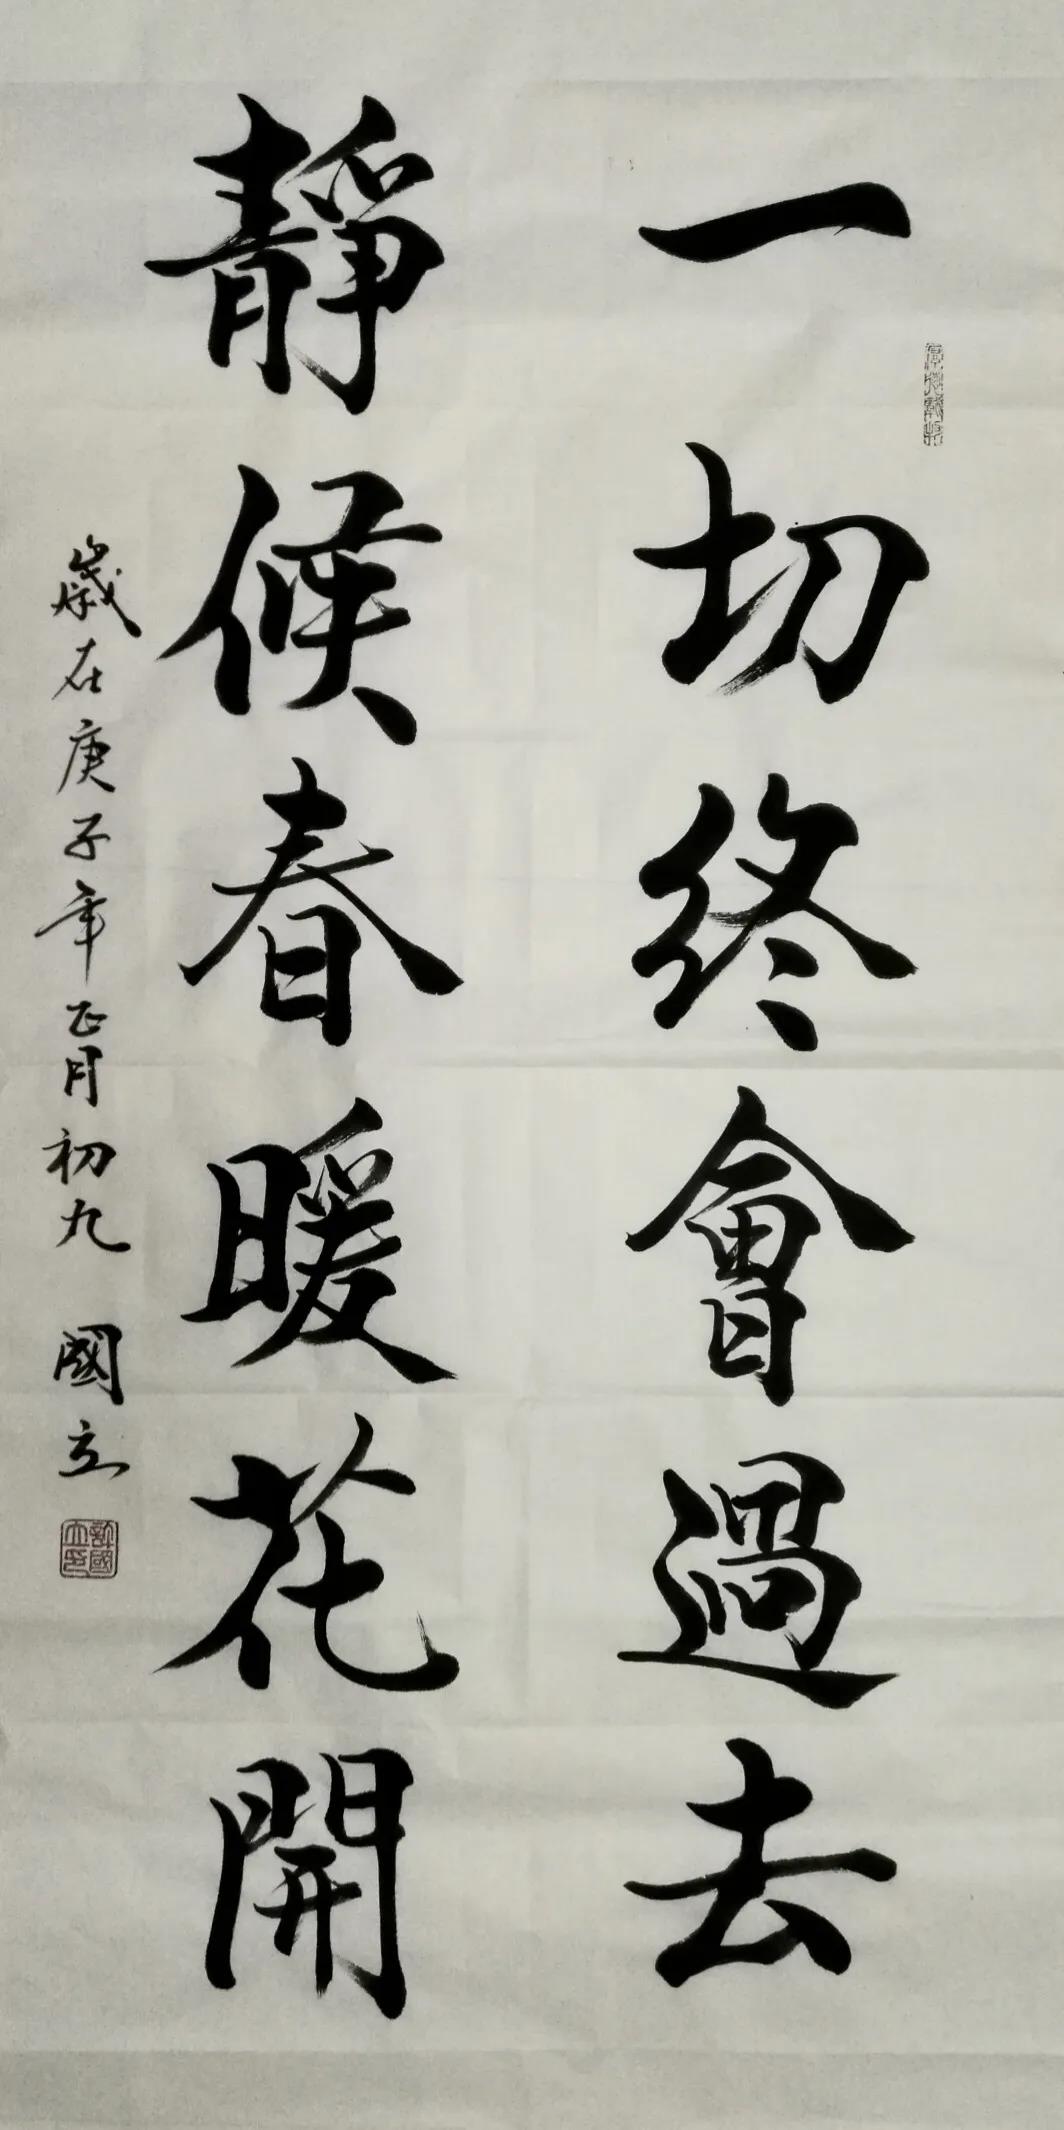 一切終會過去
靜候春暖花開
歲在庚子年正月初九 國立